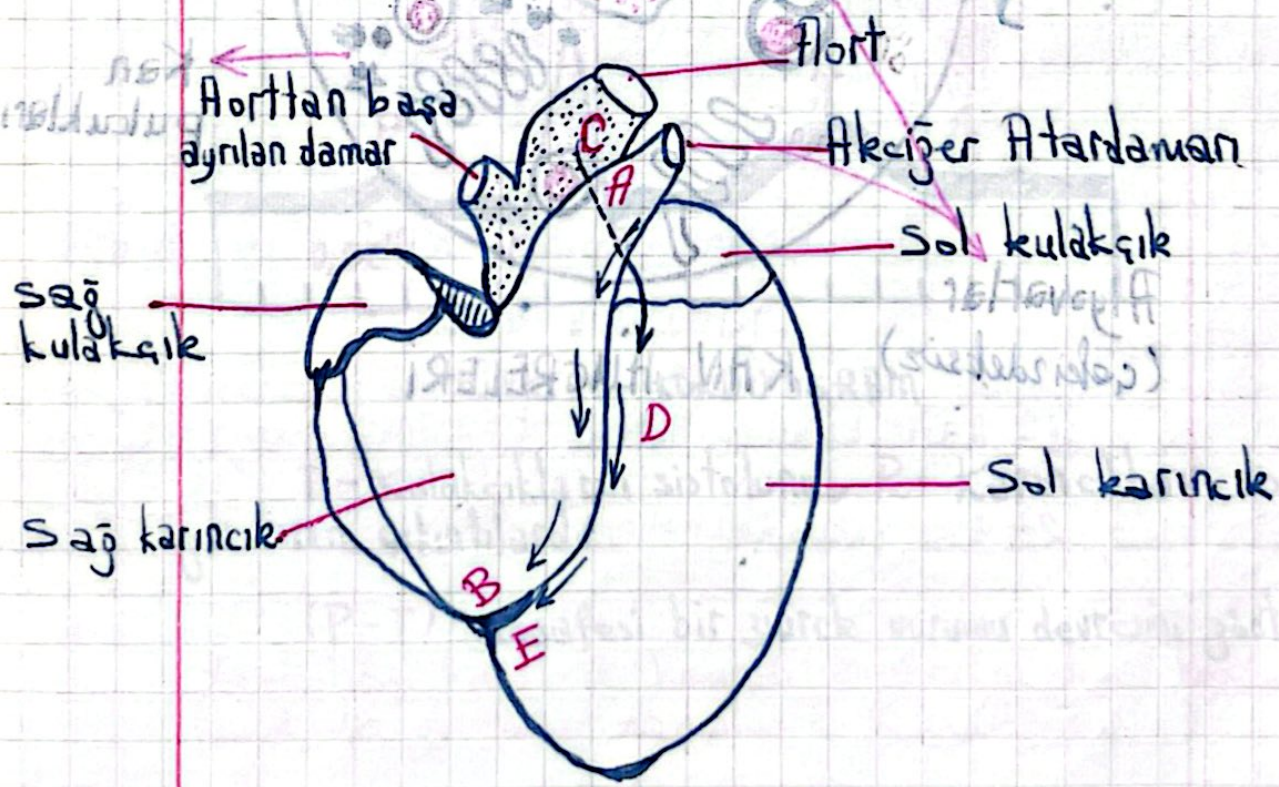 Aort
Aorttan başa
ayrılan damar
C
Akciğer Atardamarı
A
Sol kulakçık
Sağ
kulakçık
D
Sol karıncık
Sağ karıncık
B
E